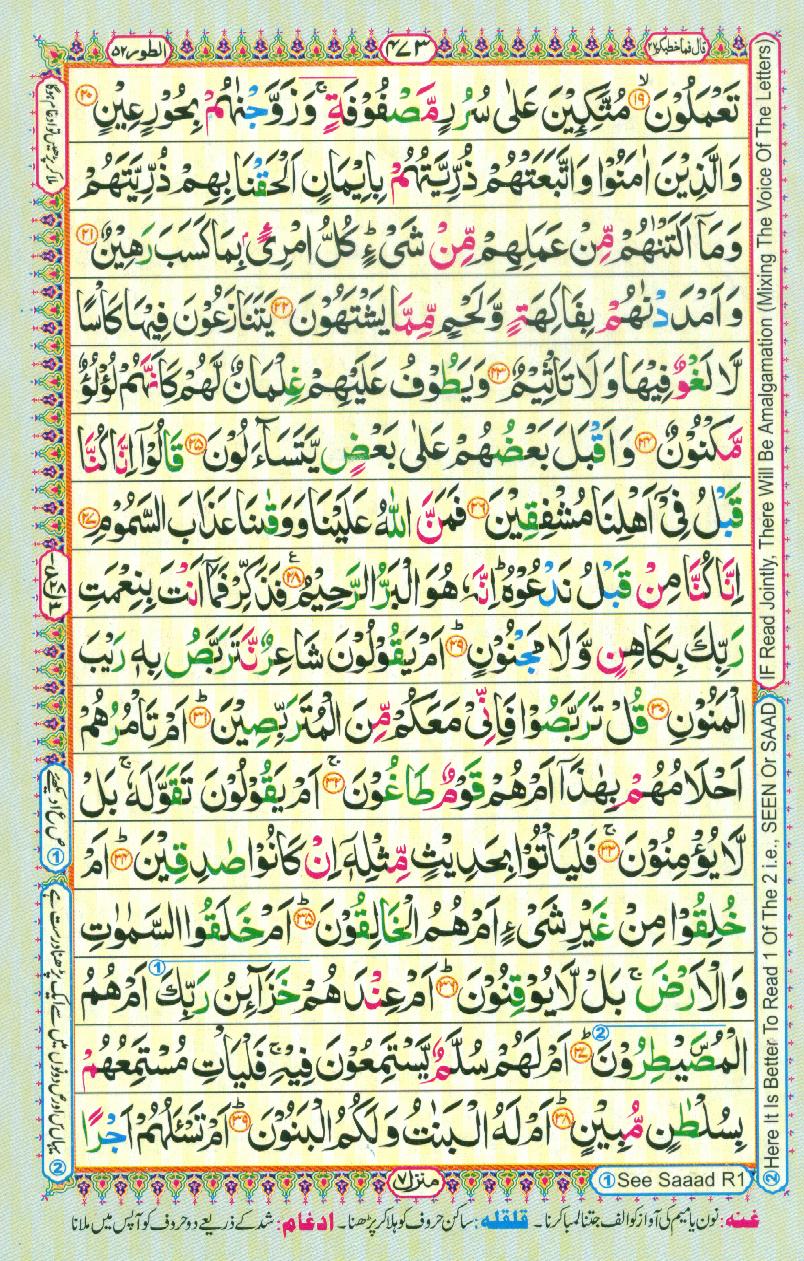 قال فما خطبكم ٢٧
٤٧٣
الطور ٥٢
تَعْمَلُوْنَ ﴿١٩﴾ۙ مُتَّكِـِٕيْنَ عَلٰى سُرُرٍ مَّصْفُوْفَةٍ ۚ وَ زَوَّجْنٰهُمْ بِحُوْرٍ عِيْنٍ ﴿٢٠﴾
وَ الَّذِيْنَ اٰمَنُوْا وَ اتَّبَعَتْهُمْ ذُرِّيَّتُهُمْ بِاِيْمَانٍ اَلْحَقْنَا بِهِمْ ذُرِّيَّتَهُمْ
وَ مَاۤ اَلَتْنٰهُمْ مِّنْ عَمَلِهِمْ مِّنْ شَیْءٍ ؕ كُلُّ امْرِئٍۭ بِمَا كَسَبَ رَهِيْنٌ ﴿٢١﴾
وَ اَمْدَدْنٰهُمْ بِفَاكِهَةٍ وَّ لَحْمٍ مِّمَّا يَشْتَهُوْنَ ﴿٢٢﴾ يَتَنَازَعُوْنَ فِيْهَا كَاْسًا
لَّا لَغْوٌ فِيْهَا وَ لَا تَاْثِيْمٌ ﴿٢٣﴾ وَ يَطُوْفُ عَلَيْهِمْ غِلْمَانٌ لَّهُمْ كَاَنَّهُمْ لُؤْلُؤٌ
مَّكْنُوْنٌ ﴿٢٤﴾ وَ اَقْبَلَ بَعْضُهُمْ عَلٰى بَعْضٍ يَّتَسَآءَلُوْنَ ﴿٢٥﴾ قَالُوْۤا اِنَّا كُنَّا
قَبْلُ فِیْۤ اَهْلِنَا مُشْفِقِيْنَ ﴿٢٦﴾ فَمَنَّ اللّٰهُ عَلَيْنَا وَ وَقٰىنَا عَذَابَ السَّمُوْمِ ﴿٢٧﴾
اِنَّا كُنَّا مِنْ قَبْلُ نَدْعُوْهُ ؕ اِنَّهٗ هُوَ الْبَرُّ الرَّحِيْمُ ﴿٢٨﴾ فَذَكِّرْ فَمَاۤ اَنْتَ بِنِعْمَتِ
رَبِّكَ بِكَاهِنٍ وَّ لَا مَجْنُوْنٍ ﴿٢٩﴾ؕ اَمْ يَقُوْلُوْنَ شَاعِرٌ نَّتَرَبَّصُ بِهٖ رَيْبَ
الْمَنُوْنِ ﴿٣٠﴾ قُلْ تَرَبَّصُوْا فَاِنِّیْ مَعَكُمْ مِّنَ الْمُتَرَبِّصِيْنَ ﴿٣١﴾ؕ اَمْ تَاْمُرُهُمْ
اَحْلَامُهُمْ بِهٰذَاۤ اَمْ هُمْ قَوْمٌ طَاغُوْنَ ﴿٣٢﴾ۚ اَمْ يَقُوْلُوْنَ تَقَوَّلَهٗ ۚ بَلْ
لَّا يُؤْمِنُوْنَ ﴿٣٣﴾ۚ فَلْيَاْتُوْا بِحَدِيْثٍ مِّثْلِهٖۤ اِنْ كَانُوْا صٰدِقِيْنَ ﴿٣٤﴾ؕ اَمْ
خُلِقُوْا مِنْ غَيْرِ شَیْءٍ اَمْ هُمُ الْخٰلِقُوْنَ ﴿٣٥﴾ؕ اَمْ خَلَقُوا السَّمٰوٰتِ
وَ الْاَرْضَ ۚ بَلْ لَّا يُوْقِنُوْنَ ﴿٣٦﴾ؕ اَمْ عِنْدَهُمْ خَزَآىِٕنُ رَبِّكَ اَمْ هُمُ
الْمُصَۜيْطِرُوْنَ ﴿٣٧﴾ؕ اَمْ لَهُمْ سُلَّمٌ يَّسْتَمِعُوْنَ فِيْهِ ۚ فَلْيَاْتِ مُسْتَمِعُهُمْ
بِسُلْطٰنٍ مُّبِيْنٍ ﴿٣٨﴾ؕ اَمْ لَهُ الْبَنٰتُ وَ لَكُمُ الْبَنُوْنَ ﴿٣٩﴾ؕ اَمْ تَسْـَٔلُهُمْ اَجْرًا
IF Read Jointly, There Will Be Amalgamation (Mixing The Voice Of The Letters)
② Here It Is Better To Read 1 Of The 2 i.e., SEEN Or SAAD
① See Saaad R1
منزل ٧
غنه: نون یا میم کی آواز کو الف جتنا لمبا کرنا۔ قلقله: ساکن حروف کو ہلا کر پڑھنا۔ ادغام: شد کے ذریعے دو حروف کو آپس میں ملانا